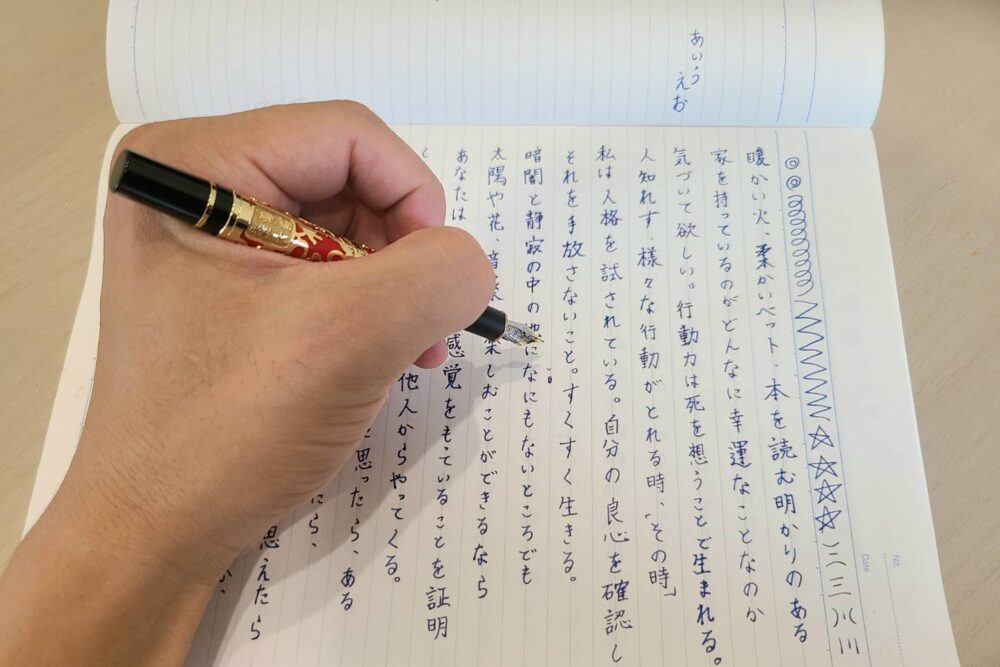 あいう
えお
No.
Date
一二三川川
暖かい火、柔かいベット、本を読む明かりのある
家を持っているのがどんなに幸運なことなのか
気づいて欲しい。行動力は死を想うことで生まれる。
人知れず、様々な行動がとれる時、「その時」
私は人格を試されている。自分の良心を確認し
それを手放さないこと。すくすく生きる。
暗闇と静寂の中の なにもないところでも
太陽や花、音楽 楽しむことができるなら
あなたは 感覚をもっていることを証明
他人からやってくる。
と思ったら、ある
にら、
思えたら